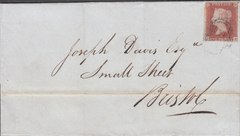 Joseph Davis Esqre
Small Street
Bristol